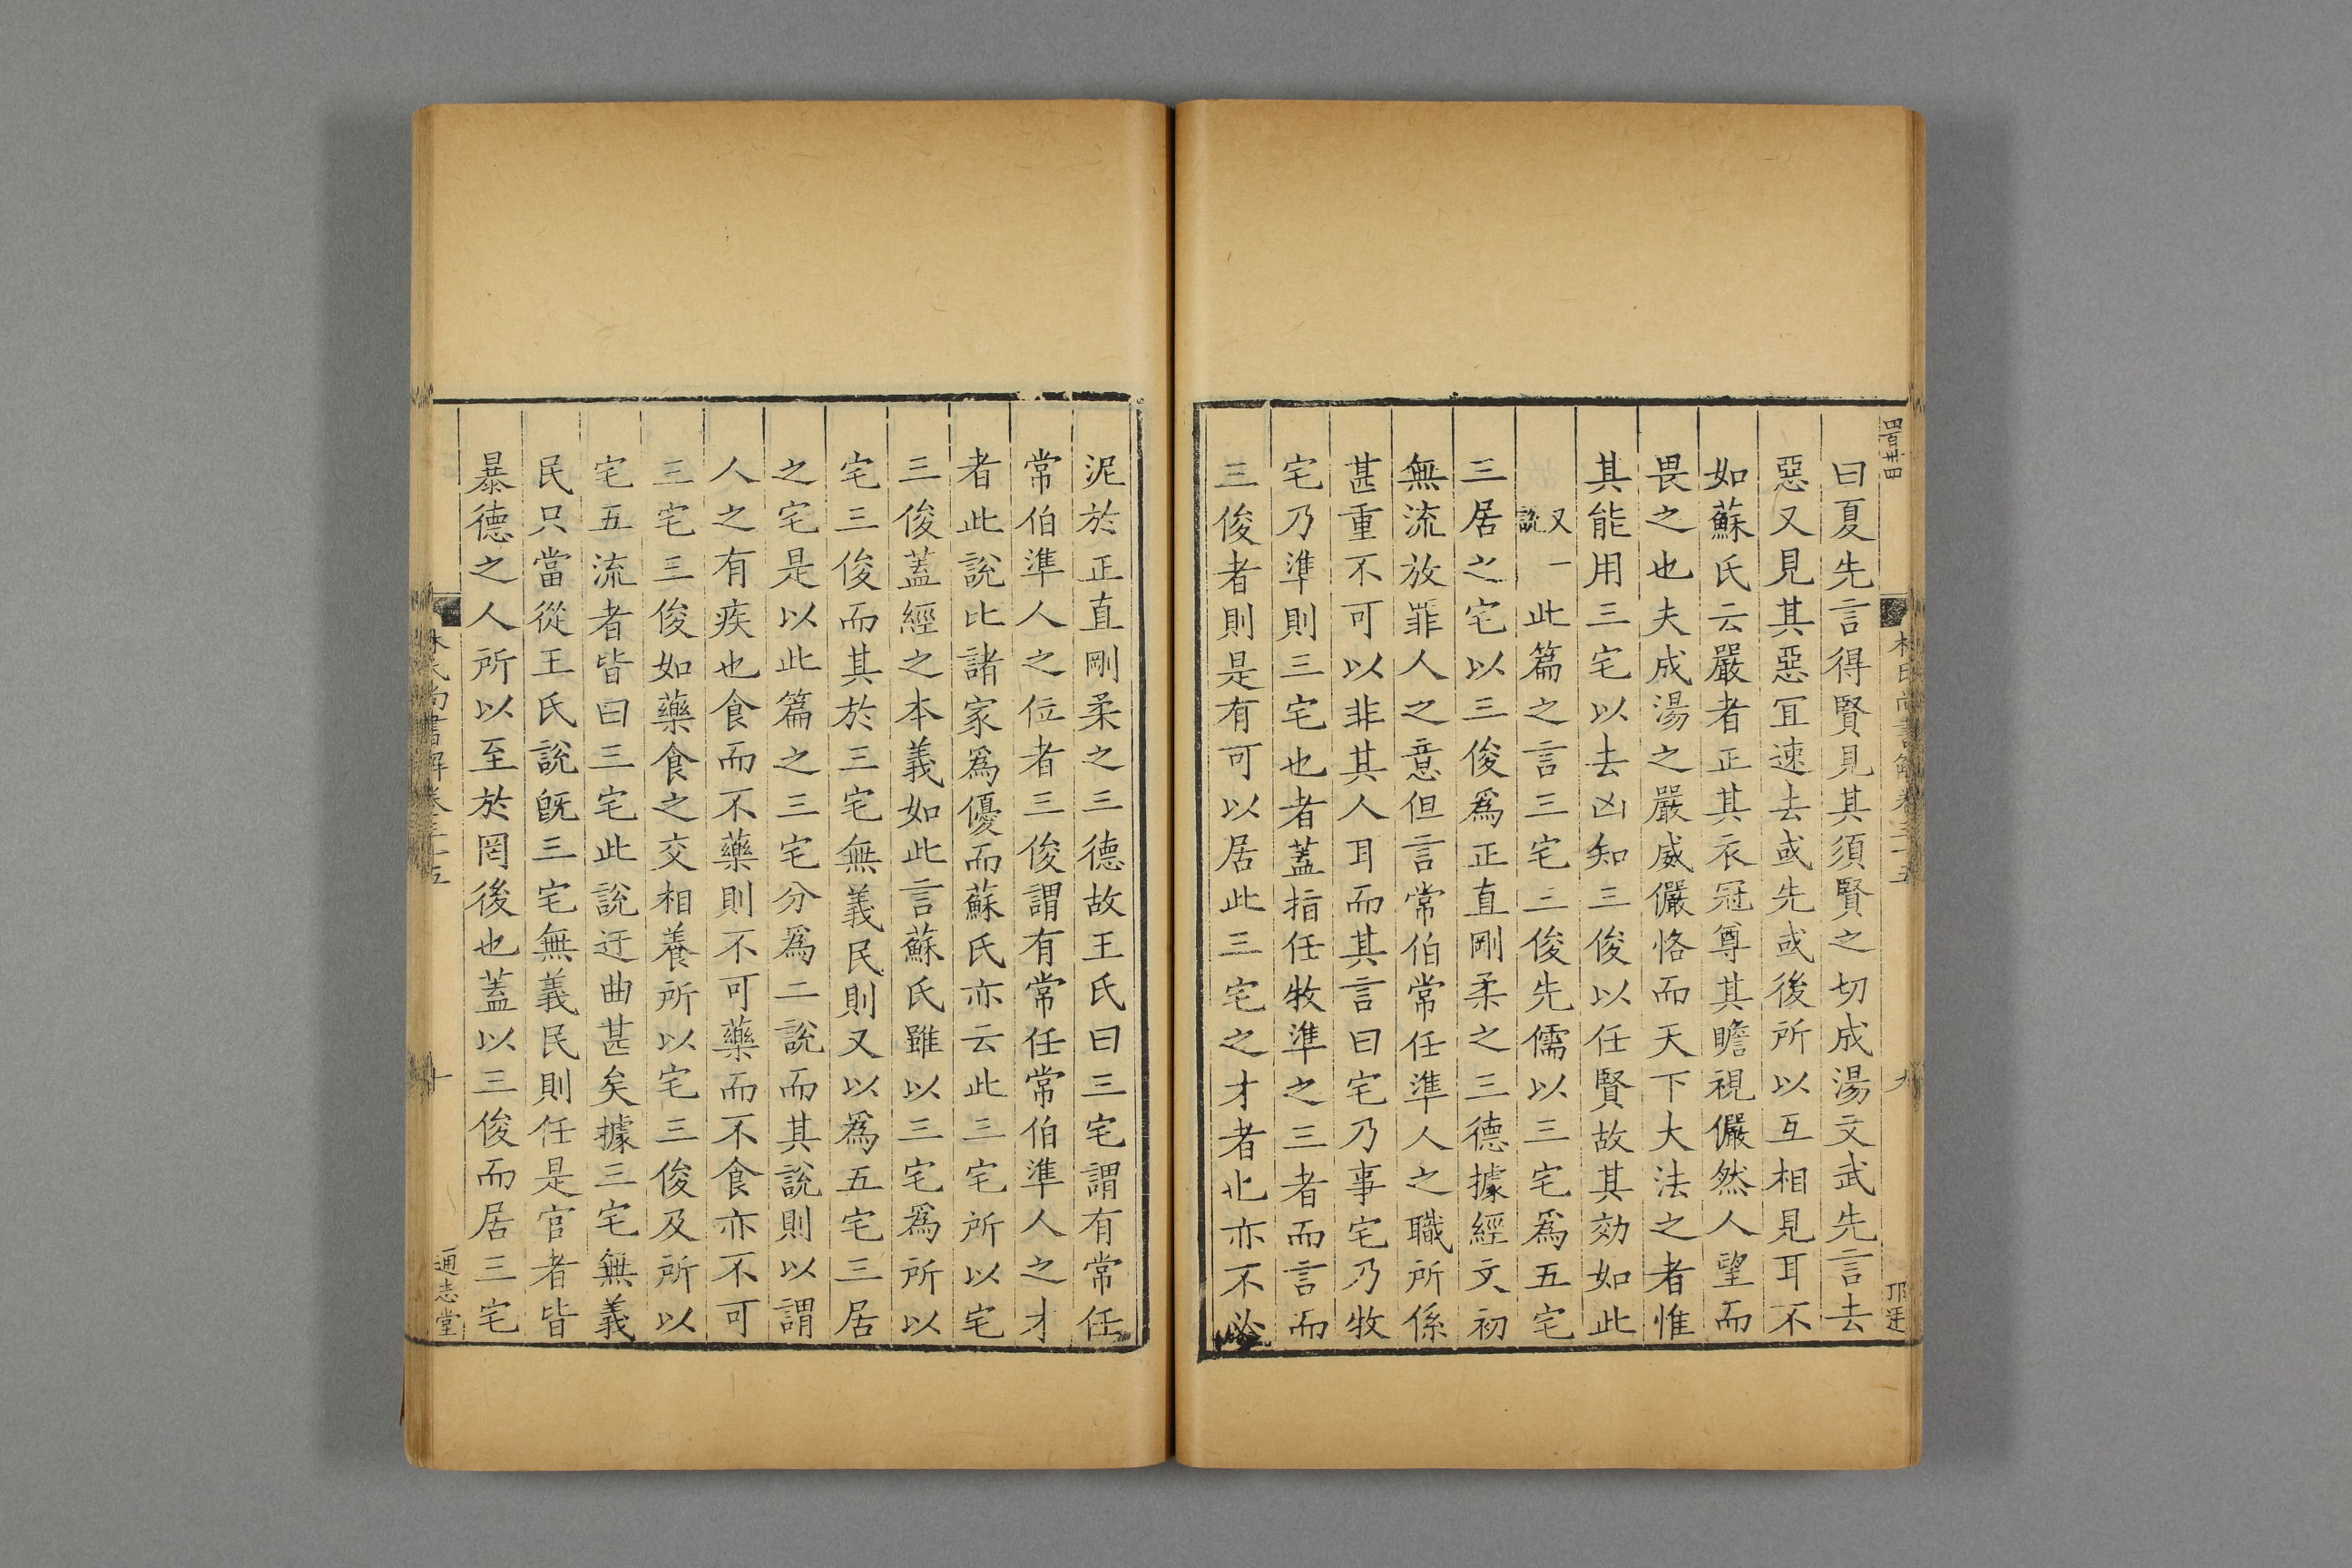 四百廿四
林氏尚書解卷三十五
九
曰夏先言得賢見其須賢之切成湯文武先言去
惡又見其惡冝速去或先或後所以互相見耳不
如蘇氏云嚴者正其衣冠尊其瞻視儼然人望而
畏之也夫成湯之嚴威儼恪而天下大法之者惟
其能用三宅以去凶知三俊以任賢故其効如此
又一說此篇之言三宅三俊先儒以三宅爲五宅
三居之宅以三俊爲正直剛柔之三德據經文初
無流放罪人之意但言常伯常任準人之職所係
甚重不可以非其人耳而其言曰宅乃事宅乃牧
宅乃準則三宅也者蓋指任牧準之三者而言而
三俊者則是有可以居此三宅之才者也亦不必
泥於正直剛柔之三德故王氏曰三宅謂有常任
常伯準人之位者三俊謂有常任常伯準人之才
者此說比諸家爲優而蘇氏亦云此三宅所以宅
三俊蓋經之本義如此言蘇氏雖以三宅爲所以
宅三俊而其於三宅無義民則又以爲五宅三居
之宅是以此篇之三宅分爲二說而其說則以謂
人之有疾也食而不藥則不可藥而不食亦不可
三宅三俊如藥食之交相養所以宅三俊及所以
宅五流者皆曰三宅此說迂曲甚矣據三宅無義
民只當從王氏說旣三宅無義民則任是官者皆
暴德之人所以至於罔後也蓋以三俊而居三宅
林氏尚書解卷三十五
十
通志堂